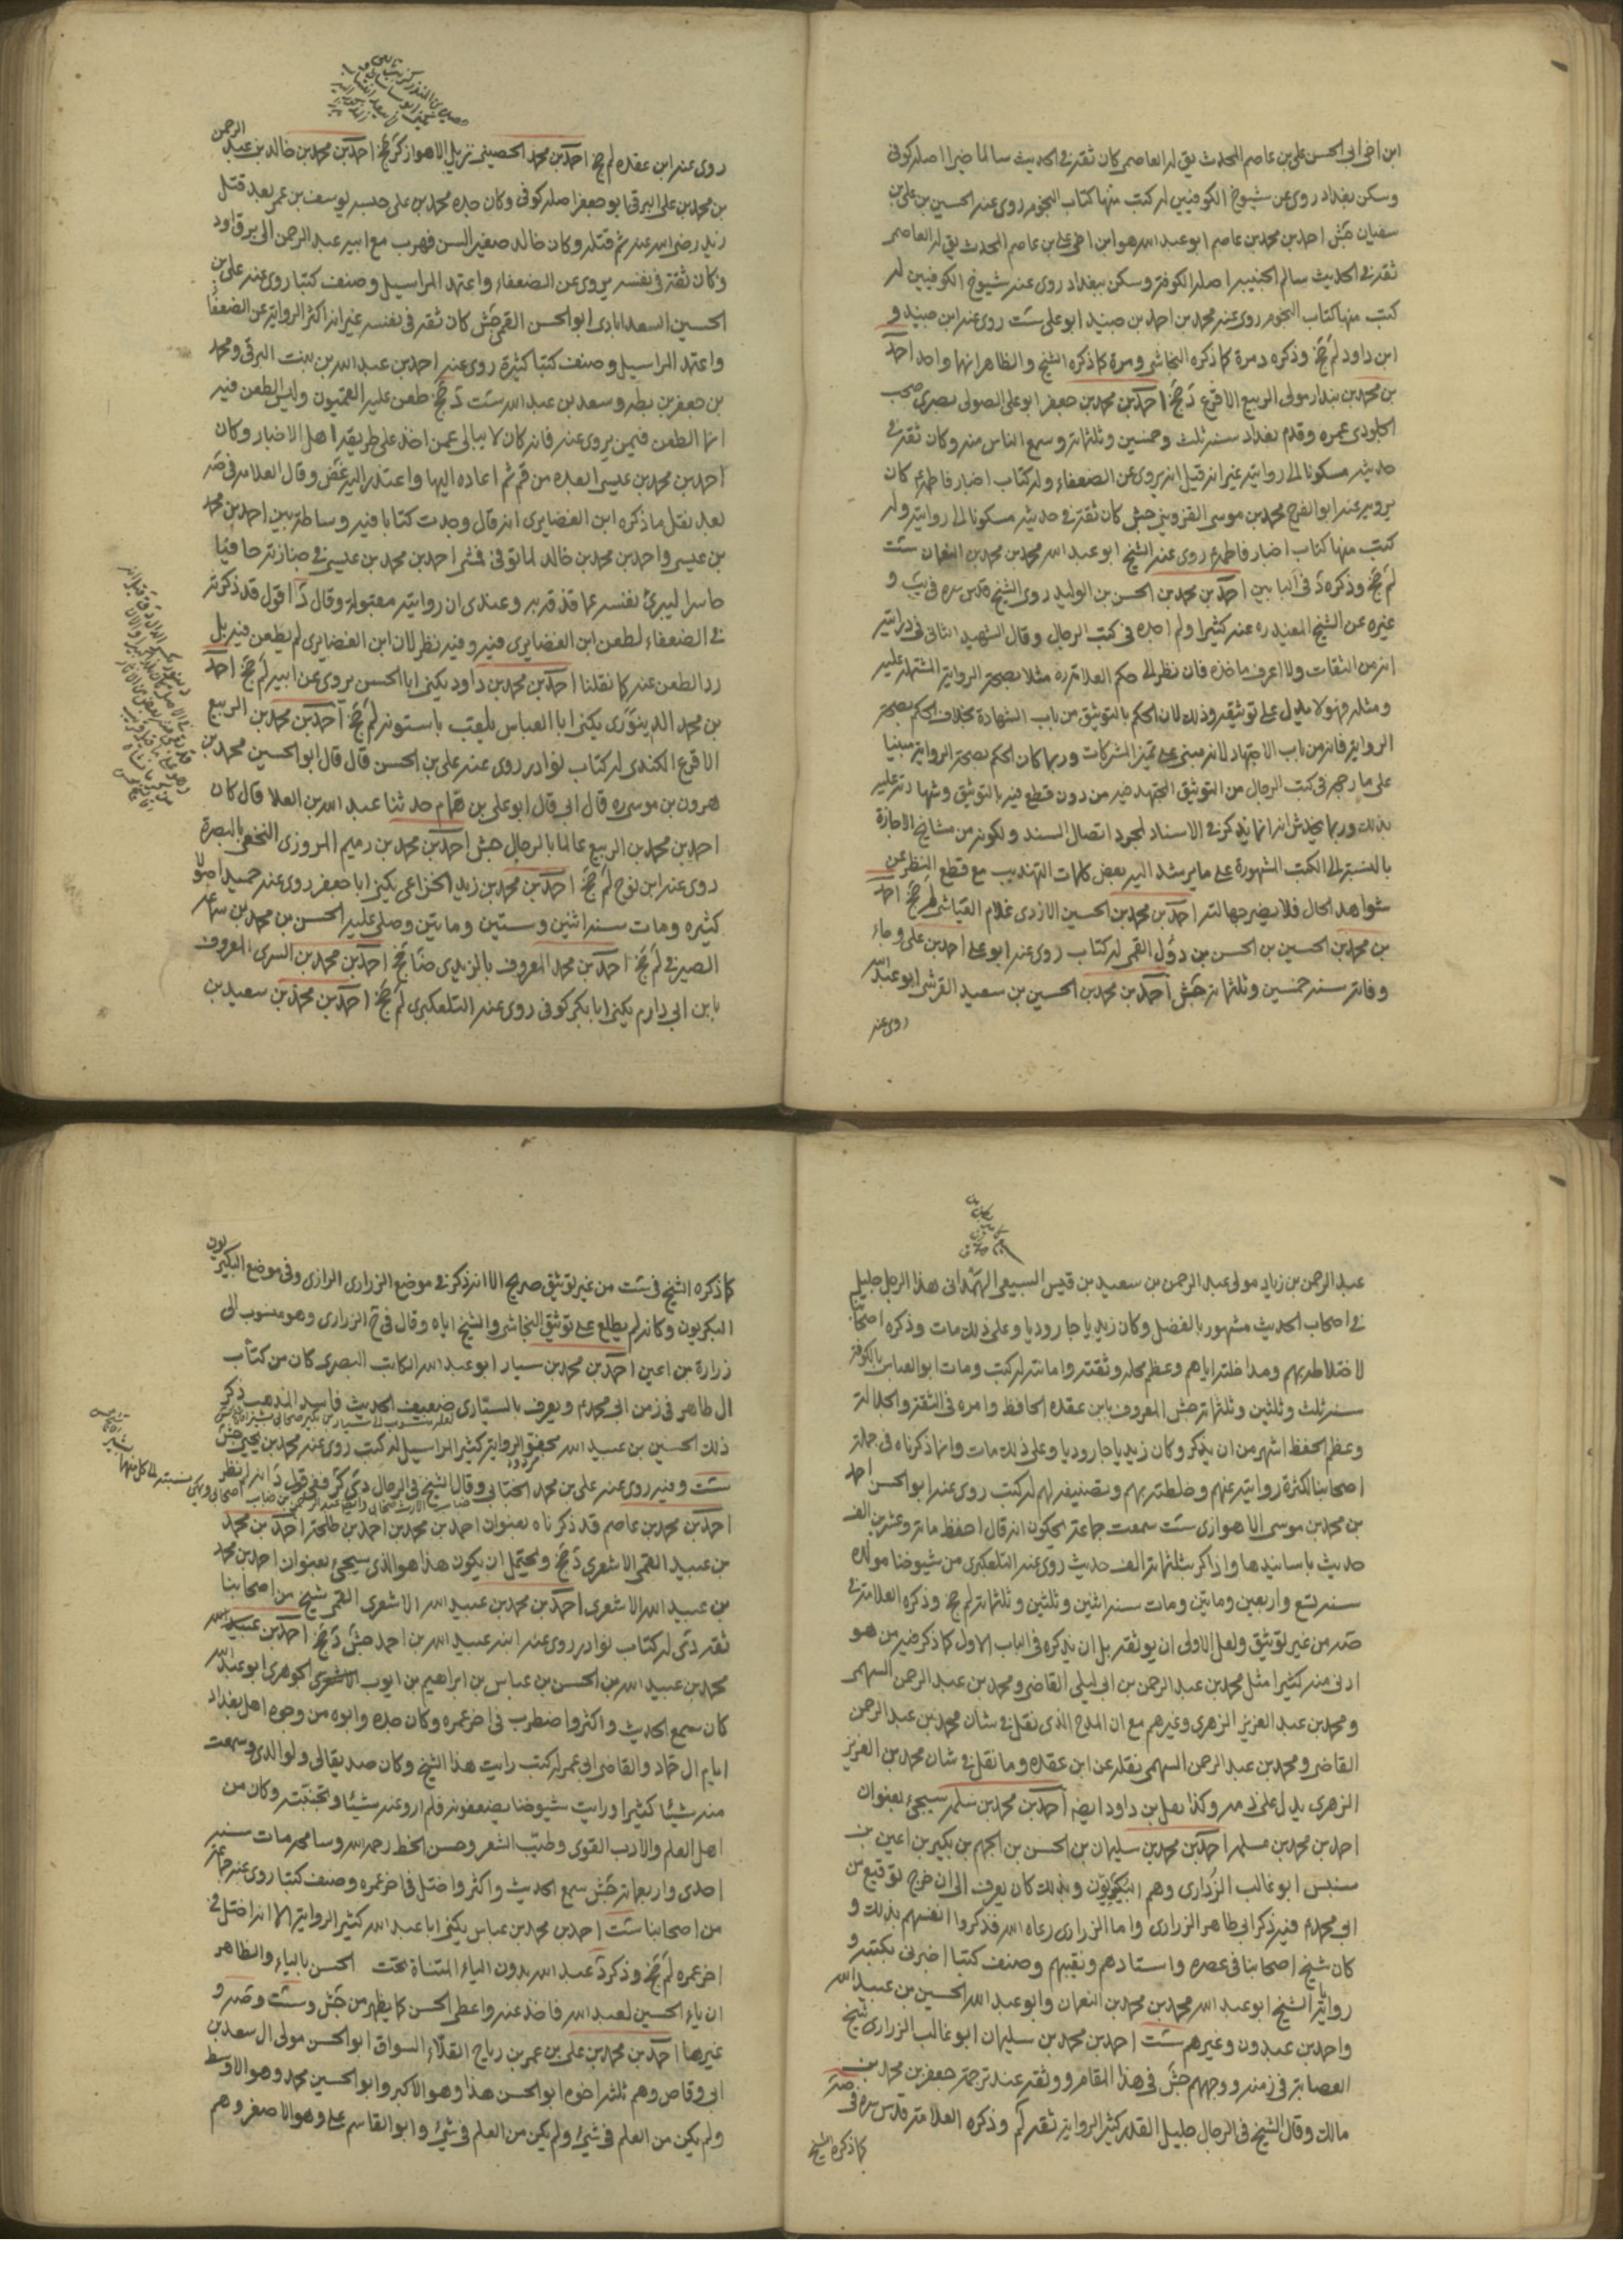 ابن اخی ابی الحسن علی بن عاصم المحدث یق له العاصمی کان ثقة فی الحدیث سالما خیرا اصله کوفی
وسکن بغداد روی عن شیوخ الکوفیین له کتب منها کتاب النجوم روی عنه الحسین بن علی بن
سفیان جش احمد بن محمد بن عاصم ابو عبد الله هو ابن اخی علی بن عاصم المحدث یق له العاصمی
ثقة فی الحدیث سالم الجنبة اصله الکوفة وسکن ببغداد روی عنه شیوخ الکوفیین له
کتب منها کتاب النجوم روی عنه محمد بن احمد بن جنید ابو علی ست روی عنه ابن جنید و
ابن داود لم جخ وذکره د مرة کما ذکره النجاشی ومرة کما ذکره الشیخ والظاهر انهما واحد احمد
بن محمد بن بندار مولی الربیع الاقرع د جخ احمد بن محمد بن جعفر ابو علی الصولی بصری صحب
الجلودی عمره وقدم بغداد سنة ثلث وخمسین وثلثمائة وسمع الناس منه وکان ثقة فی
حدیثه مسکونا الی روایته غیر انه قیل انه یروی عن الضعفاء وله کتاب اخبار فاطمة ع کان
یرویه عنه ابو الفرج محمد بن موسی القزوینی جش کان ثقة فی حدیثه مسکونا الی روایته وله
کتب منها کتاب اخبار فاطمة ع روی عنه الشیخ ابو عبد الله محمد بن محمد بن النعمان ست
لم جخ وذکره د فی البابین احمد بن محمد بن الحسن بن الولید روی الشیخ قدس سره فی یب و
غیره عن الشیخ المفید ره عنه کثیرا ولم اجده فی کتب الرجال وقال الشهید الثانی فی درایته
انه من الثقات ولا اعرف ماخذه فان نظر الی حکم العلامة ره مثلا بصحة الروایة المشتملة علیه
ومثله فهو لا یدل علی توثیقه وذلک لان الحکم بالتوثیق من باب الشهادة بخلاف الحکم بصحة
الروایة فانه من باب الاجتهاد لانه مبنی علی تمیز المشترکات وربما کان الحکم بصحة الروایة مبنیا
علی ما رجح فی کتب الرجال من التوثیق المجتهد فیه من دون قطع فیه بالتوثیق وشهادته علیه
بذلک وربما یخدش انه انما یذکر فی الاسناد لمجرد اتصال السند ولکونه من مشایخ الاجازة
بالنسبة الی الکتب المشهورة علی ما یرشد الیه بعض کلمات التهذیب مع قطع النظر عن
شواهد الحال فلا یضر جهالته احمد بن محمد بن الحسین الازدی غلام العیاشی لم جخ احمد
بن محمد بن الحسین بن الحسن بن دؤل القمی له کتاب روی عنه ابو علی احمد بن علی وجاء
وفاته سنة خمسین وثلثمائة جش احمد بن محمد بن الحسین بن سعید القرشی ابو عبد الله
روی عنه
روی عنه ابن عقدة لم جخ احمد بن محمد الحصینی نزیل الاهواز کر جخ احمد بن محمد بن خالد بن عبد الرحمن
بن محمد بن علی البرقی ابو جعفر اصله کوفی وکان جده محمد بن علی حبسه یوسف بن عمر بعد قتل
زید رضی الله عنه ثم قتله وکان خالد صغیر السن فهرب مع ابیه عبد الرحمن الی برقاود
وکان ثقة فی نفسه یروی عن الضعفاء واعتمد المراسیل وصنف کتبا روی عنه علی بن
الحسین السعدابادی ابو الحسن القمی جش کان ثقة فی نفسه غیر انه اکثر الروایة عن الضعفاء
واعتمد المراسیل وصنف کتبا کثیرة روی عنه احمد بن عبد الله بن بنت البرقی ومحمد
بن جعفر بن بطة وسعد بن عبد الله ست د جخ طعن علیه القمیون ولیس الطعن فیه
انما الطعن فیمن یروی عنه فانه کان لا یبالی عمن اخذ علی طریقة اهل الاخبار وکان
احمد بن محمد بن عیسی ابعده من قم ثم اعاده الیها واعتذر الیه غض وقال العلامة فی صه
بعد نقل ما ذکره ابن الغضایری انه قال وجدت کتابا فیه وساطة بین احمد بن محمد
بن عیسی واحمد بن محمد بن خالد لما توفی فمشی احمد بن محمد بن عیسی فی جنازته حافیا
حاسرا لیبرئ نفسه عما قذفه به وعندی ان روایته مقبولة وقال د اقول قد ذکرته
فی الضعفاء لطعن ابن الغضایری فیه وفیه نظر لان ابن الغضایری لم یطعن فیه بل
رد الطعن عنه کما نقلنا احمد بن محمد بن داود یکنی ابا الحسن یروی عن ابیه لم جخ احمد
بن محمد الدینوری یکنی ابا العباس یلقب باستونه لم جخ احمد بن محمد بن الربیع
الاقرع الکندی له کتاب نوادر روی عنه علی بن الحسن قال قال ابو الحسین محمد بن
هرون بن موسی ره قال ابی قال ابو علی بن همام حدثنا عبد الله بن العلا قال کان
احمد بن محمد بن الربیع عالما بالرجال جش احمد بن محمد بن رمیم المروزی النخعی بالبصرة
روی عنه ابن نوح لم جخ احمد بن محمد بن زید الخزاعی یکنی ابا جعفر روی عنه حمید اصولا
کثیرة ومات سنة اثنین وستین ومایتین وصلی علیه الحسن بن محمد بن سماعة
الصیرفی لم جخ احمد بن محمد المعروف بالزیدی ضا جخ احمد بن محمد بن السری المعروف
بابن ابی دارم یکنی ابا بکر کوفی روی عنه التلعکبری لم جخ احمد بن محمد بن سعید بن
عبد الرحمن بن زیاد مولی عبد الرحمن بن سعید بن قیس السبیعی الهمدانی هذا الرجل جلیل
فی اصحاب الحدیث مشهور بالفضل وکان زیدیا جارودیا وعلی ذلک مات وذکره اصحابنا
لاختلاطه بهم ومداخلته ایاهم وعظم محله وثقته وامانته له کتب ومات ابو العباس بالکوفة
سنة ثلث وثلثین وثلثمائة جش المعروف بابن عقدة الحافظ وامره فی الثقة والجلالة
وعظم الحفظ اشهر من ان یذکر وکان زیدیا جارودیا وعلی ذلک مات وانما ذکرناه فی جملة
اصحابنا لکثرة روایته عنهم وخلطته بهم وتصنیفه لهم له کتب روی عنه ابو الحسن احمد
بن محمد بن موسی الاهوازی ست سمعت جماعة یحکون انه قال احفظ مائة وعشرین الف
حدیث باسانیدها واذاکر بثلثمائة الف حدیث روی عنه التلعکبری من شیوخنا مولده
سنة تسع واربعین ومایتین ومات سنة اثنین وثلثین وثلثمائة لم جخ وذکره العلامة فی
صه من غیر توثیق ولعل الاولی ان یوثقه بل ان یذکره فی الباب الاول کما ذکر فیه من هو
ادنی منه کثیرا مثل محمد بن عبد الرحمن بن ابی لیلی القاضی ومحمد بن عبد الرحمن السهمی
ومحمد بن عبد العزیز الزهری وغیرهم مع ان المدح الذی نقل فی شان محمد بن عبد الرحمن
القاضی ومحمد بن عبد الرحمن السهمی نقله عن ابن عقدة وما نقل فی شان محمد بن العزیز
الزهری یدل علی ذمه وکذا فعل بن داود ایضا احمد بن محمد بن سلمة سیجیء بعنوان
احمد بن محمد بن مسلمة احمد بن محمد بن سلیمان بن الحسن بن الجهم بن بکیر بن اعین بن
سنسن ابو غالب الزراری وهم البکیریون وبذلک کان یعرف الی ان خرج توقیع من
ابی محمد ع فیه ذکر ابی طاهر الزراری واما الزراری رعاه الله فذکروا انفسهم بذلک و
کان شیخ اصحابنا فی عصره واستادهم ونقیبهم وصنف کتبا اخبرنی بکتبه و
روایاته الشیخ ابو عبد الله محمد بن محمد بن النعمان وابو عبد الله الحسین بن عبید الله
واحمد بن عبدون وغیرهم ست احمد بن محمد بن سلیمان ابو غالب الزراری شیخ
العصابة فی زمنه ووجههم جش فی هذا المقام ووثقه عند ترجمة جعفر بن محمد بن
مالک وقال الشیخ فی الرجال جلیل القدر کثیر الروایة ثقة لم وذکره العلامة قدس سره فی صه
کما ذکره الشیخ
کما ذکره الشیخ فی ست من غیر توثیق صریح الا انه ذکر فی موضع الزراری الرازی وفی موضع البکیریون
البکریون وکانه لم یطلع علی توثیق النجاشی والشیخ ایاه وقال فی ح الزراری وهو منسوب الی
زرارة بن اعین احمد بن محمد بن سیار ابو عبد الله الکاتب البصری کان من کتاب
ال طاهر فی زمن ابی محمد ع ویعرف بالسیاری ضعیف الحدیث فاسد المذهب ذکر
ذلک الحسین بن عبید الله مجفو الروایة کثیر المراسیل له کتب روی عنه محمد بن یحیی جش
ست وفیه روی عنه علی بن محمد الجبائی وقال الشیخ فی الرجال دی کر ففی قول د انه لم نظر
احمد بن محمد بن عاصم قد ذکرناه بعنوان احمد بن محمد بن احمد بن طلحة احمد بن محمد
بن عبید القمی الاشعری د جخ ویحتمل ان یکون هذا هو الذی سیجیء بعنوان احمد بن محمد
بن عبید الله الاشعری احمد بن محمد بن عبید الله الاشعری القمی شیخ من اصحابنا
ثقة دی له کتاب نوادر روی عنه ابنه عبید الله بن احمد جش د جخ احمد بن
محمد بن عبید الله بن الحسن بن عباس بن ابراهیم بن ایوب الجوهری ابو عبد الله
کان سمع الحدیث واکثر واضطرب فی اخر عمره وکان جده وابوه من وجوه اهل بغداد
ایام ال حماد والقاضی ابی عمر له کتب رایت هذا الشیخ وکان صدیقا لی ولوالدی وسمعت
منه شیئا کثیرا ورایت شیوخنا یضعفونه فلم ارو عنه شیئا وتجنبته وکان من
اهل العلم والادب القوی وطیب الشعر وحسن الخط رحمه الله وسامحه مات سنة
احدی واربعمائة جش سمع الحدیث واکثر واختل فی اخر عمره وصنف کتبا روی عنه جماعة
من اصحابنا ست احمد بن محمد بن عباس یکنی ابا عبد الله کثیر الروایة الا انه اختل فی
اخر عمره لم جخ وذکر د عبد الله بدون الیاء المثناة تحت الحسن بالیاء والظاهر
ان یاء الحسین لعبد الله فاخذ عنه واعطی الحسن کما یظهر من جش وست وصه و
غیرها احمد بن محمد بن علی بن عمر بن رباح القلاء السواق ابو الحسن مولی ال سعد بن
ابی وقاص وهم ثلثة اخوة ابو الحسن هذا وهو الاکبر وابو الحسین محمد وهو الاوسط
ولم یکن من العلم فی شیء ولم یکن من العلم فی شیء وابو القاسم علی وهو الاصغر وهم